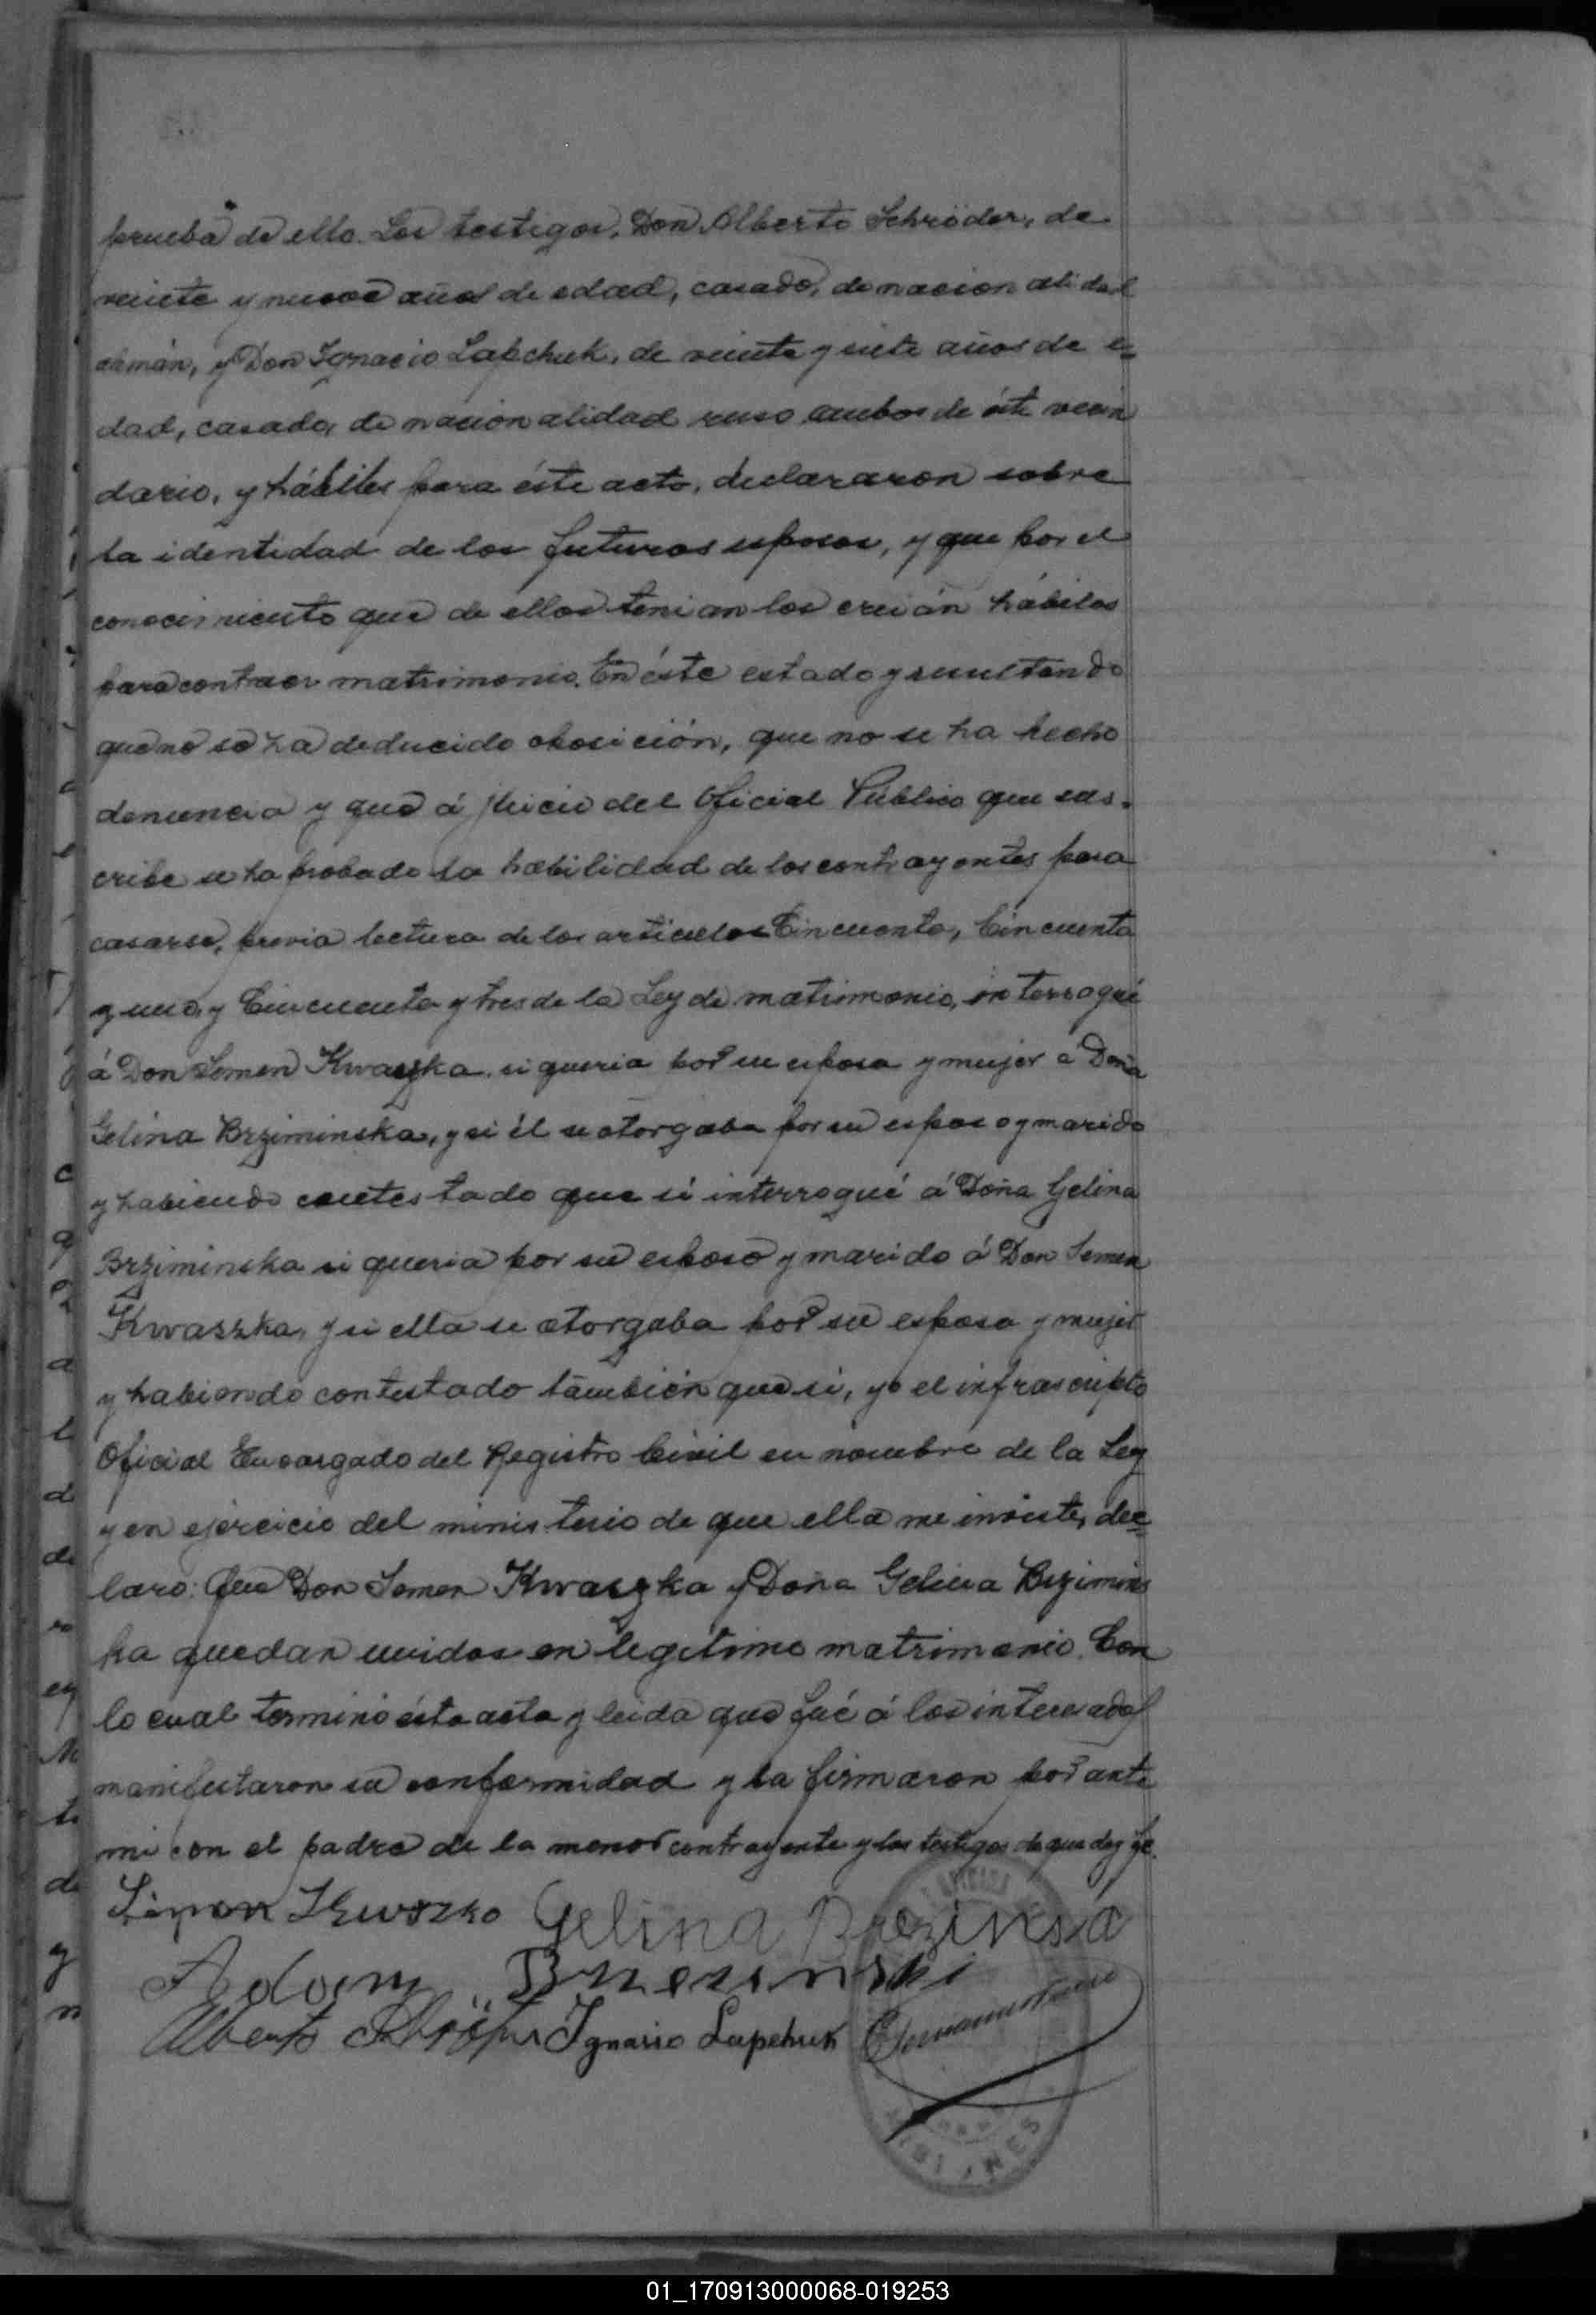 prueba de ello. Los testigos, Don Alberto Schröder, de
veinte y nueve años de edad, casado, de nacionalidad
alemán, y Don Ignacio Lapchuk, de veinte y siete años de e=
dad, casado, de nacionalidad ruso, ambos de éste vecin
dario, y hábiles para éste acto, declararon sobre
la identidad de los futuros esposos, y que por el
conocimiento que de ellos tenian los creián hábiles
para contraer matrimonio. En éste estado y resultando
que no se ha deducido oposición, que no se ha hecho
denuncia y que á juicio del Oficial Público que sus-
cribe se ha probado la habilidad de los contrayentes para
casarse, previa lectura de los articulos Cincuenta, Cincuenta
y uno, y Cincuenta y tres de la Ley de matrimonio, interrogué
á Don Semen Kwaszka, si queria por su esposa y mujer á Doña
Gelina Brziminska, y si él se otorgaba por su esposo y marido
y habiendo contestado que si interrogué á Doña Gelina
Brziminska si queria por su esposo y marido á Don Semen
Kwaszka, y si ella se otorgaba por su esposa y mujer
y habiendo contestado también que si, yo el infrascripto
Oficial Encargado del Registro Civil en nombre de la Ley
y en ejercicio del ministerio de que ella me inviste, dec=
laro: Que Don Semen Kwaszka y Doña Gelina Brzimins
ka quedan unidos en legitimo matrimonio. Con
lo cual terminó ésta acta y leida que fué á los interesados
manifestaron su conformidad y la firmaron por ante
mi con el padre de la menor contrayente y los testigos de que doy fé.
Simon Kwszko Gelina Brezinsá
Adam Brzezinski
Alberto Schröder Ignacio Lapchuk
MISIONES
01_170913000068-019253